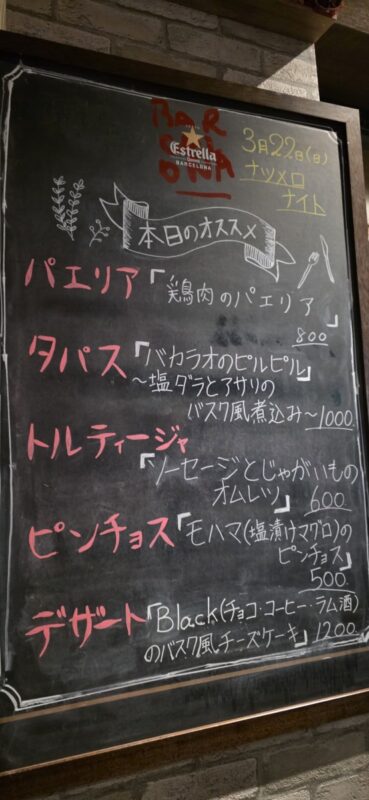 BAR
CEL
ONA
Estrella
Damm
BARCELONA
3月22日(日)
ナツメロ
ナイト
本日のオススメ
パエリア「鶏肉のパエリア」
800
タパス「バカラオのピルピル」
〜塩ダラとアサリの
バスク風煮込み〜1000
トルティージャ
「ソーセージとじゃがいもの
オムレツ」600
ピンチョス「モハマ(塩漬けマグロ)の
ピンチョス」
500
デザート「Black(チョコ・コーヒー・ラム酒)
のバスク風チーズケーキ」1200